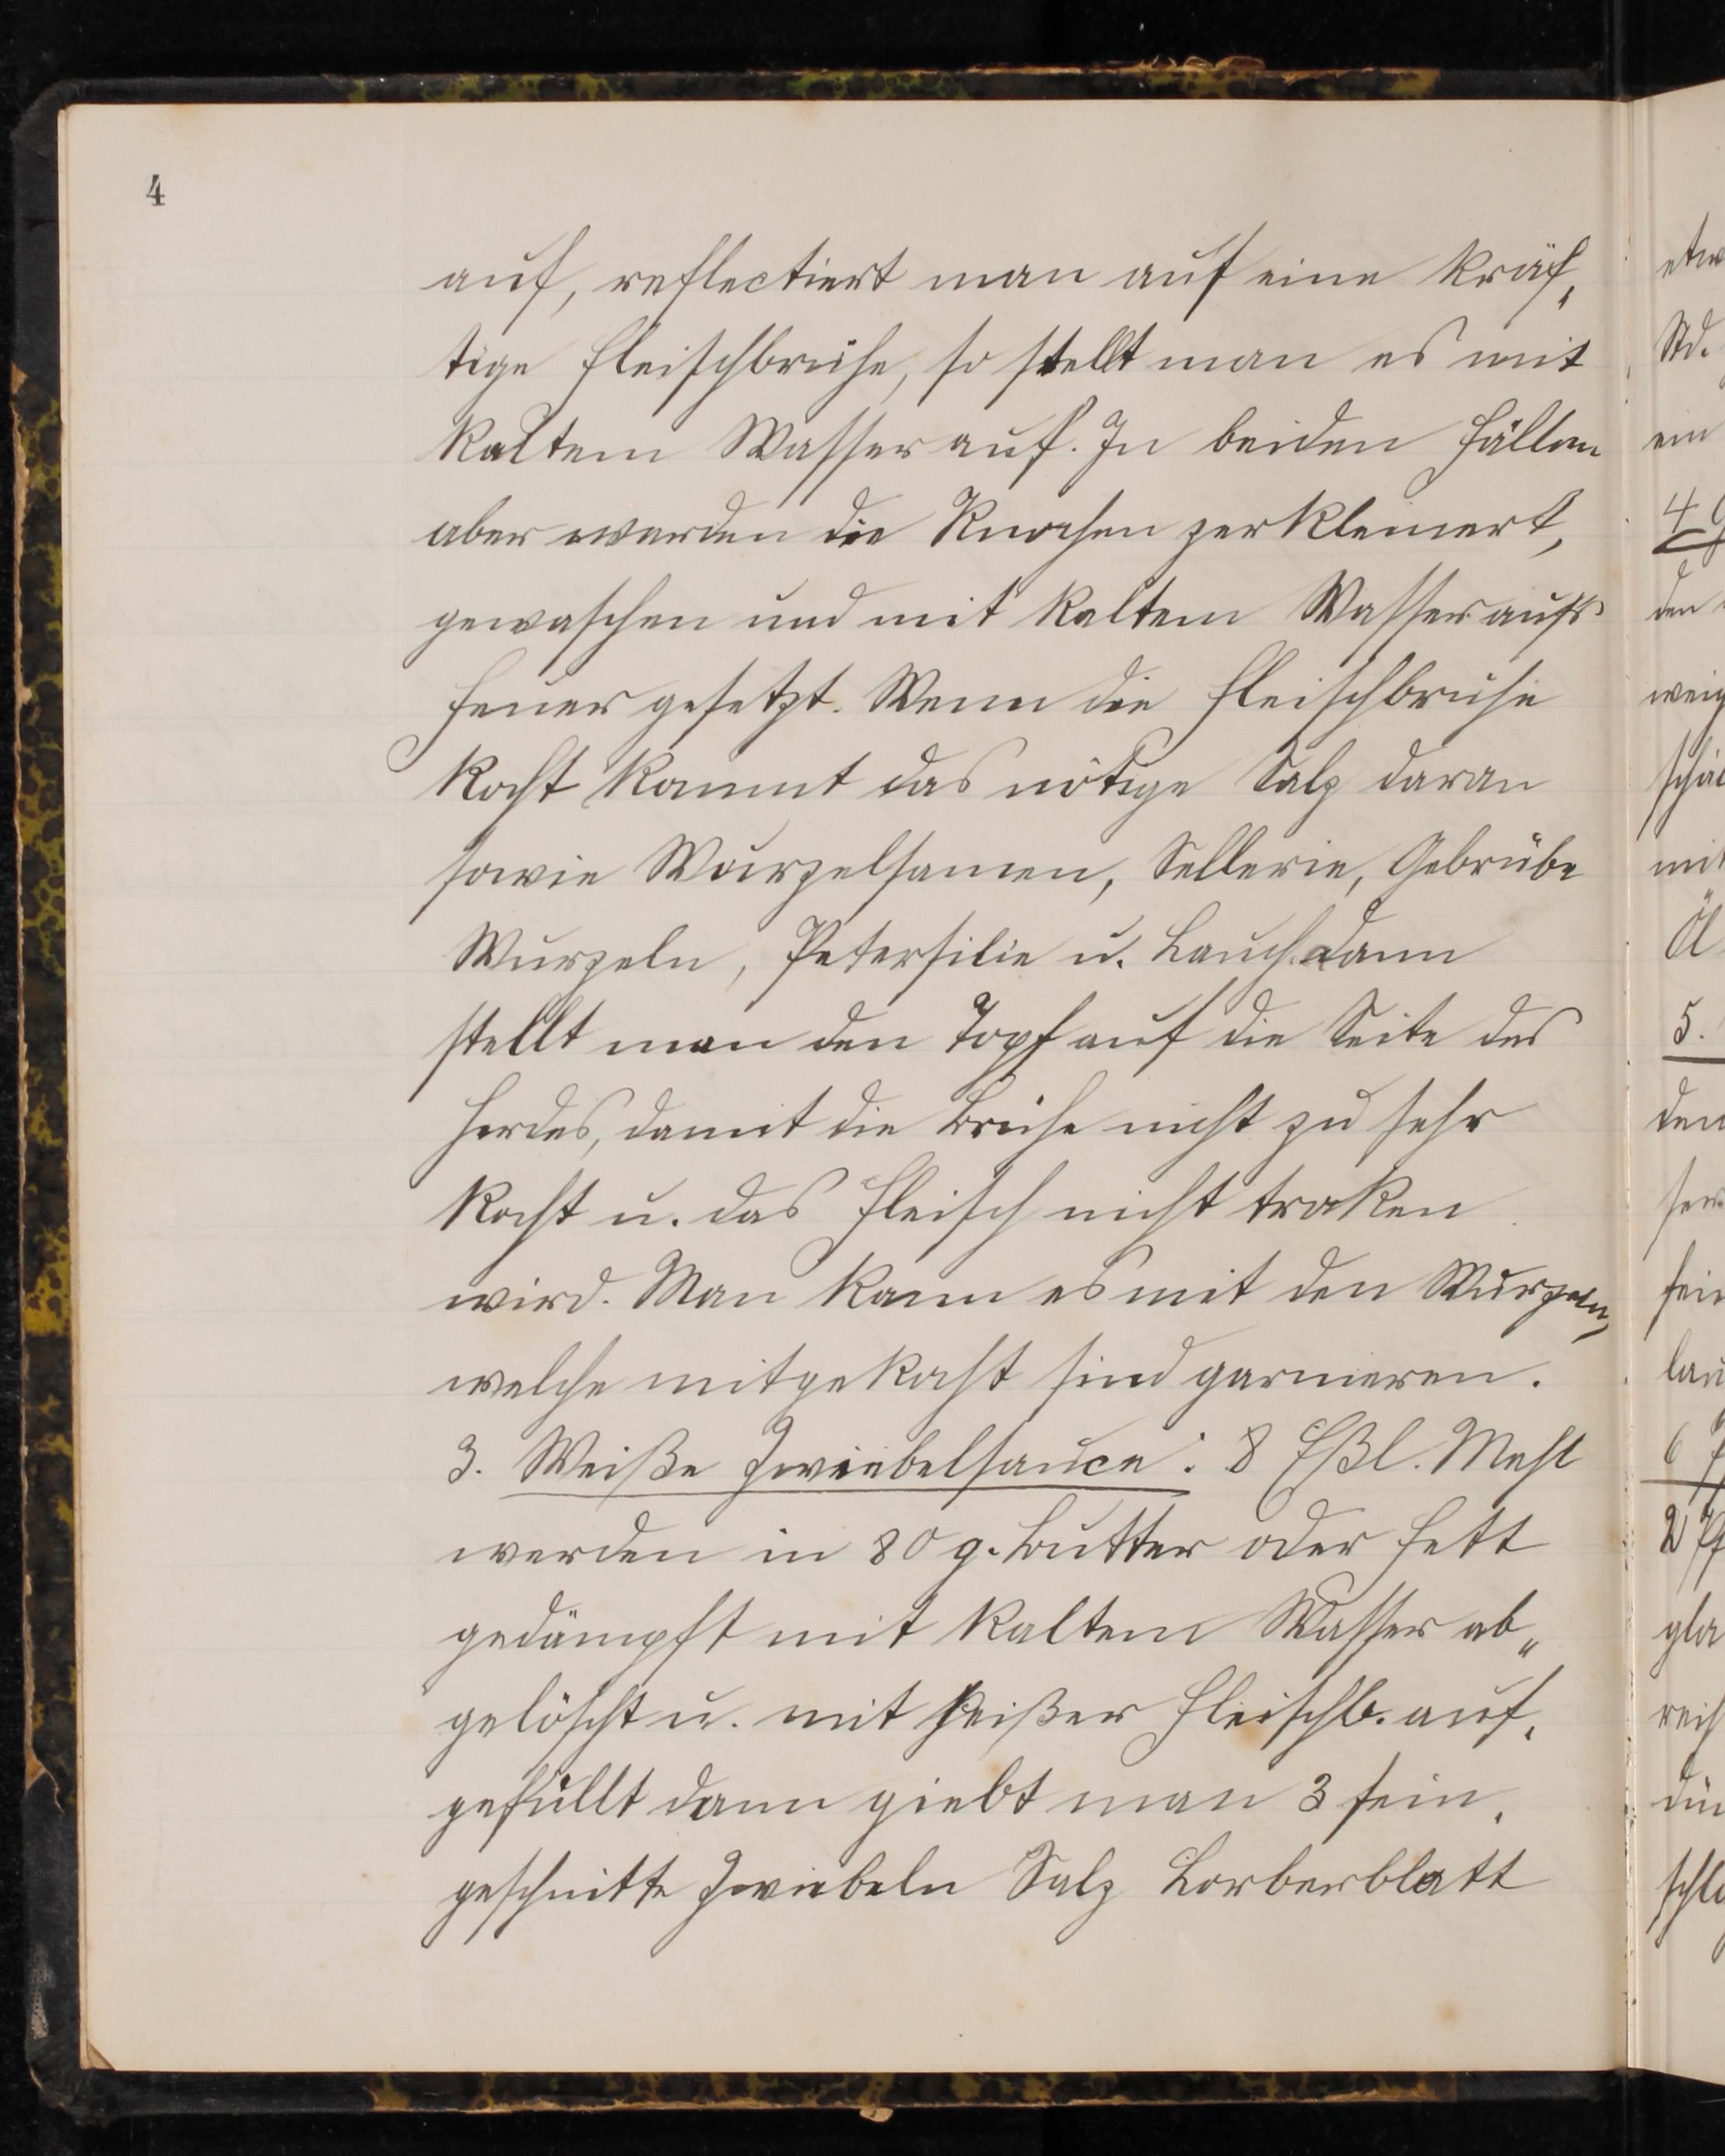 4
auf, reflectiert man auf eine kräf„
tige Fleischbrühe, so stellt man es mit
kaltem Wasser auf. In beiden Fällen
aber werden die Knochen zerkleinert,
gewaschen und mit kaltem Wasser aufs
Feuer gesetzt. Wenn die Fleischbrühe
kocht kommt das nötige Salz daran
sowie Wurzelsamen, Sellerie, Gebrübe
Wurzeln, Petersilie u. Lauch dann
stellt man den Topf auf die Seite des
Herdes, damit die Brühe nicht zu sehr
kocht u. das Fleisch nicht troken
wird. Man kann es mit den Wurzeln,
welche mitgekocht sind garnieren.
3. Weiße Zwiebelsauce: 8 Eßl. Mehl
werden in 80 g. Butter oder Fett
gedämpft mit kaltem Wasser ab„
gelöscht u. mit heißer Fleischb. auf„
gefüllt dann giebt man 3 fein„
geschnitte Zwiebeln Salz Lorberblatt
etw
Std.
ein
4
den
weig
schäl
mit
Öl
5.
den
fein
lau
6
2 Pf
gla
reich
dün
schle